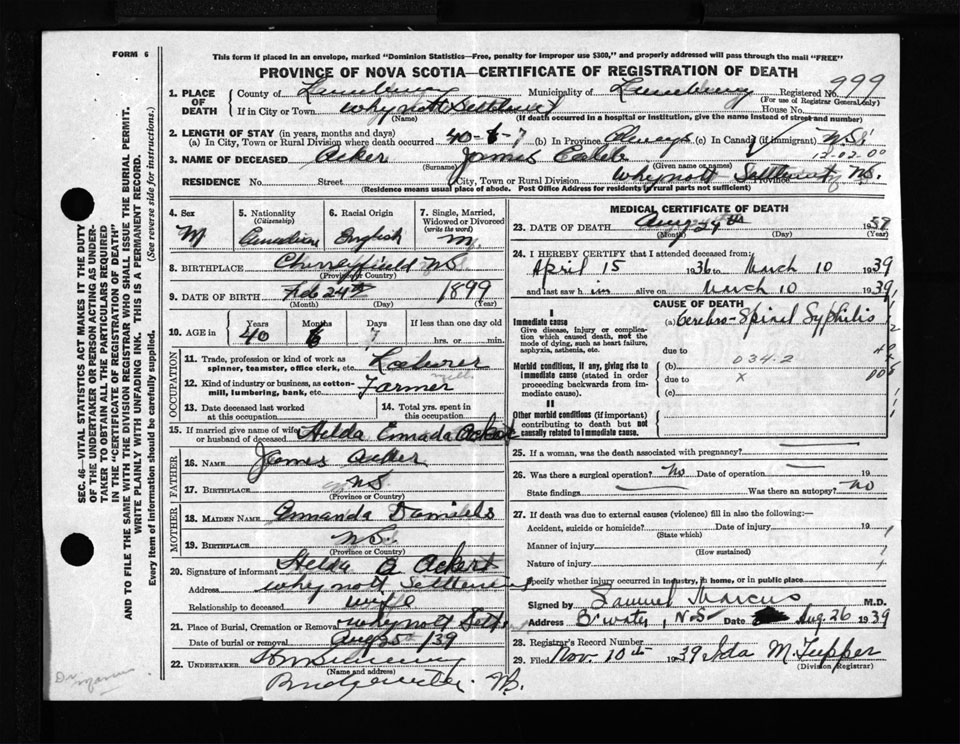 FORM 6
This form if placed in an envelope, marked "Dominion Statistics—Free, penalty for improper use $300," and properly addressed will pass through the mail "FREE"
PROVINCE OF NOVA SCOTIA—CERTIFICATE OF REGISTRATION OF DEATH
SEC. 46—VITAL STATISTICS ACT MAKES IT THE DUTY
OF THE UNDERTAKER OR PERSON ACTING AS UNDER-
TAKER TO OBTAIN ALL THE PARTICULARS REQUIRED
IN THE "CERTIFICATE OF REGISTRATION OF DEATH"
AND TO FILE THE SAME WITH THE DIVISION REGISTRAR WHO SHALL ISSUE THE BURIAL PERMIT.
WRITE PLAINLY WITH UNFADING INK. THIS IS A PERMANENT RECORD.
Every item of Information should be carefully supplied.
(See reverse side for instructions.)
1. PLACE OF DEATH County of Lunenburg Municipality of Lunenburg Registered No. 999
(For use of Registrar General only)
If in City or Town Whynott Settlement House No.
(Name) (If death occurred in a hospital or institution, give the name instead of street and number)
2. LENGTH OF STAY (in years, months and days)
(a) In City, Town or Rural Division where death occurred 40-6-7 (b) In Province Always (c) In Canada (if immigrant) N.S.
13-02-00
3. NAME OF DECEASED Acker James Caleb
(Surname) (Given name or names)
RESIDENCE No. Street City, Town or Rural Division Whynott Settlement Province N.S.
(Residence means usual place of abode. Post Office Address for residents in rural parts not sufficient)
4. Sex M
5. Nationality (Citizenship) Canadian
6. Racial Origin English
7. Single, Married, Widowed or Divorced (write the word) M.
8. BIRTHPLACE Cherryfield N.S.
(Province or Country)
9. DATE OF BIRTH Feb 24th 1899
(Month) (Day) (Year)
10. AGE in Years 40 Months 6 Days 7 If less than one day old hrs. or min.
OCCUPATION
11. Trade, profession or kind of work as spinner, teamster, office clerk, etc. Laborer
12. Kind of industry or business, as cotton-mill, lumbering, bank, etc. Farmer
13. Date deceased last worked at this occupation
14. Total yrs. spent in this occupation
15. If married give name of wife or husband of deceased Helda Acker
FATHER
16. NAME James Acker
17. BIRTHPLACE N.S.
(Province or Country)
MOTHER
18. MAIDEN NAME Daniels
19. BIRTHPLACE N.S.
(Province or Country)
20. Signature of informant Helda Acker
Address Whynott Settlement
Relationship to deceased wife
21. Place of Burial, Cremation or Removal Whynott Sett
Date of burial or removal Aug /39
22. UNDERTAKER
(Name and address)
Bridgewater N.S.
MEDICAL CERTIFICATE OF DEATH
23. DATE OF DEATH Aug 24th
(Month) (Day) (Year)
24. I HEREBY CERTIFY that I attended deceased from:
April 15 1936 to March 10 1939
and last saw him alive on March 10 1939
CAUSE OF DEATH
I
Immediate cause
Give disease, injury or complication which caused death, not the mode of dying, such as heart failure, asphyxia, asthenia, etc.
(a) Cerebro-Spinal Syphilis
due to
034.2
Morbid conditions, if any, giving rise to immediate cause (stated in order proceeding backwards from immediate cause).
(b)
due to x
(c)
II
Other morbid conditions (if important) contributing to death but not causally related to immediate cause.
25. If a woman, was the death associated with pregnancy?
26. Was there a surgical operation? No Date of operation 19
State findings Was there an autopsy? No
27. If death was due to external causes (violence) fill in also the following:—
Accident, suicide or homicide? Date of injury 19
(State which)
Manner of injury
(How sustained)
Nature of injury
Specify whether injury occurred in industry, in home, or in public place
Signed by Samuel Marcus M.D.
Address B'water, N.S. Date Aug 26 1939
28. Registrar's Record Number
29. Filed Nov. 10th 1939 Ida M. Tupper
(Division Registrar)